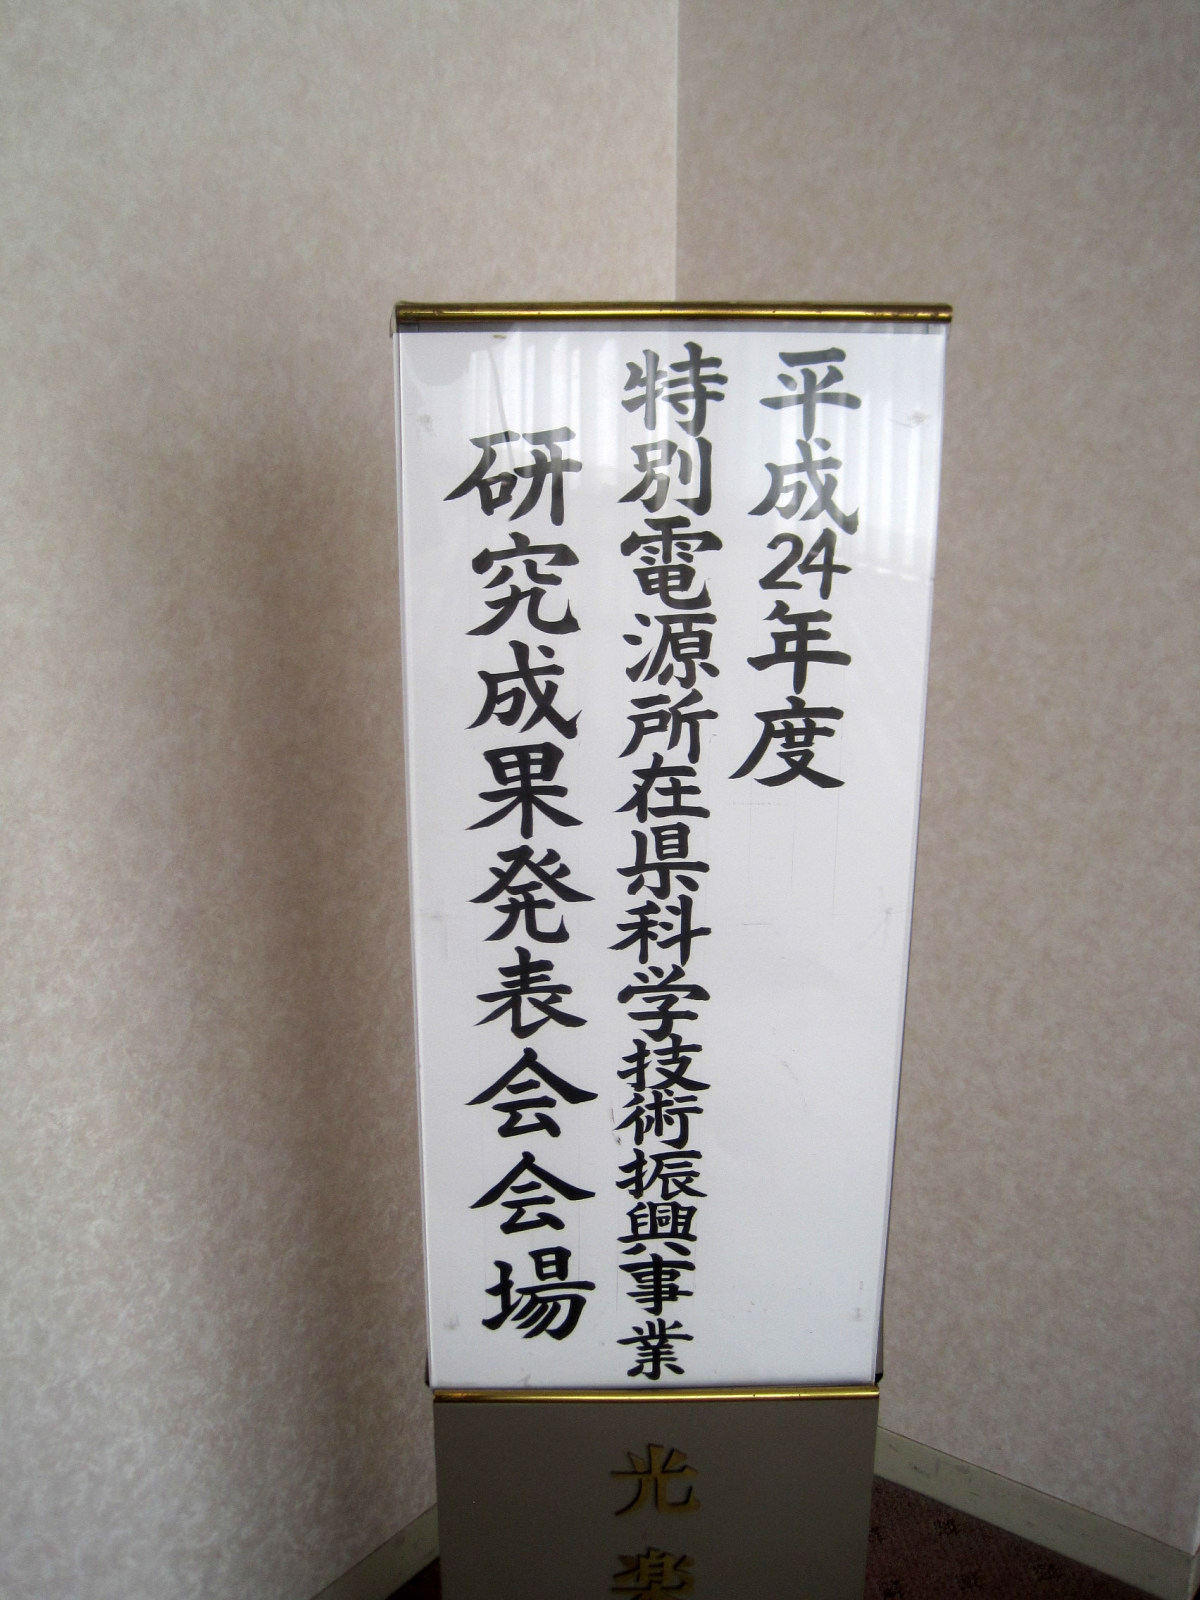 平成24年度
特別電源所在県科学技術振興事業
研究成果発表会会場
光楽